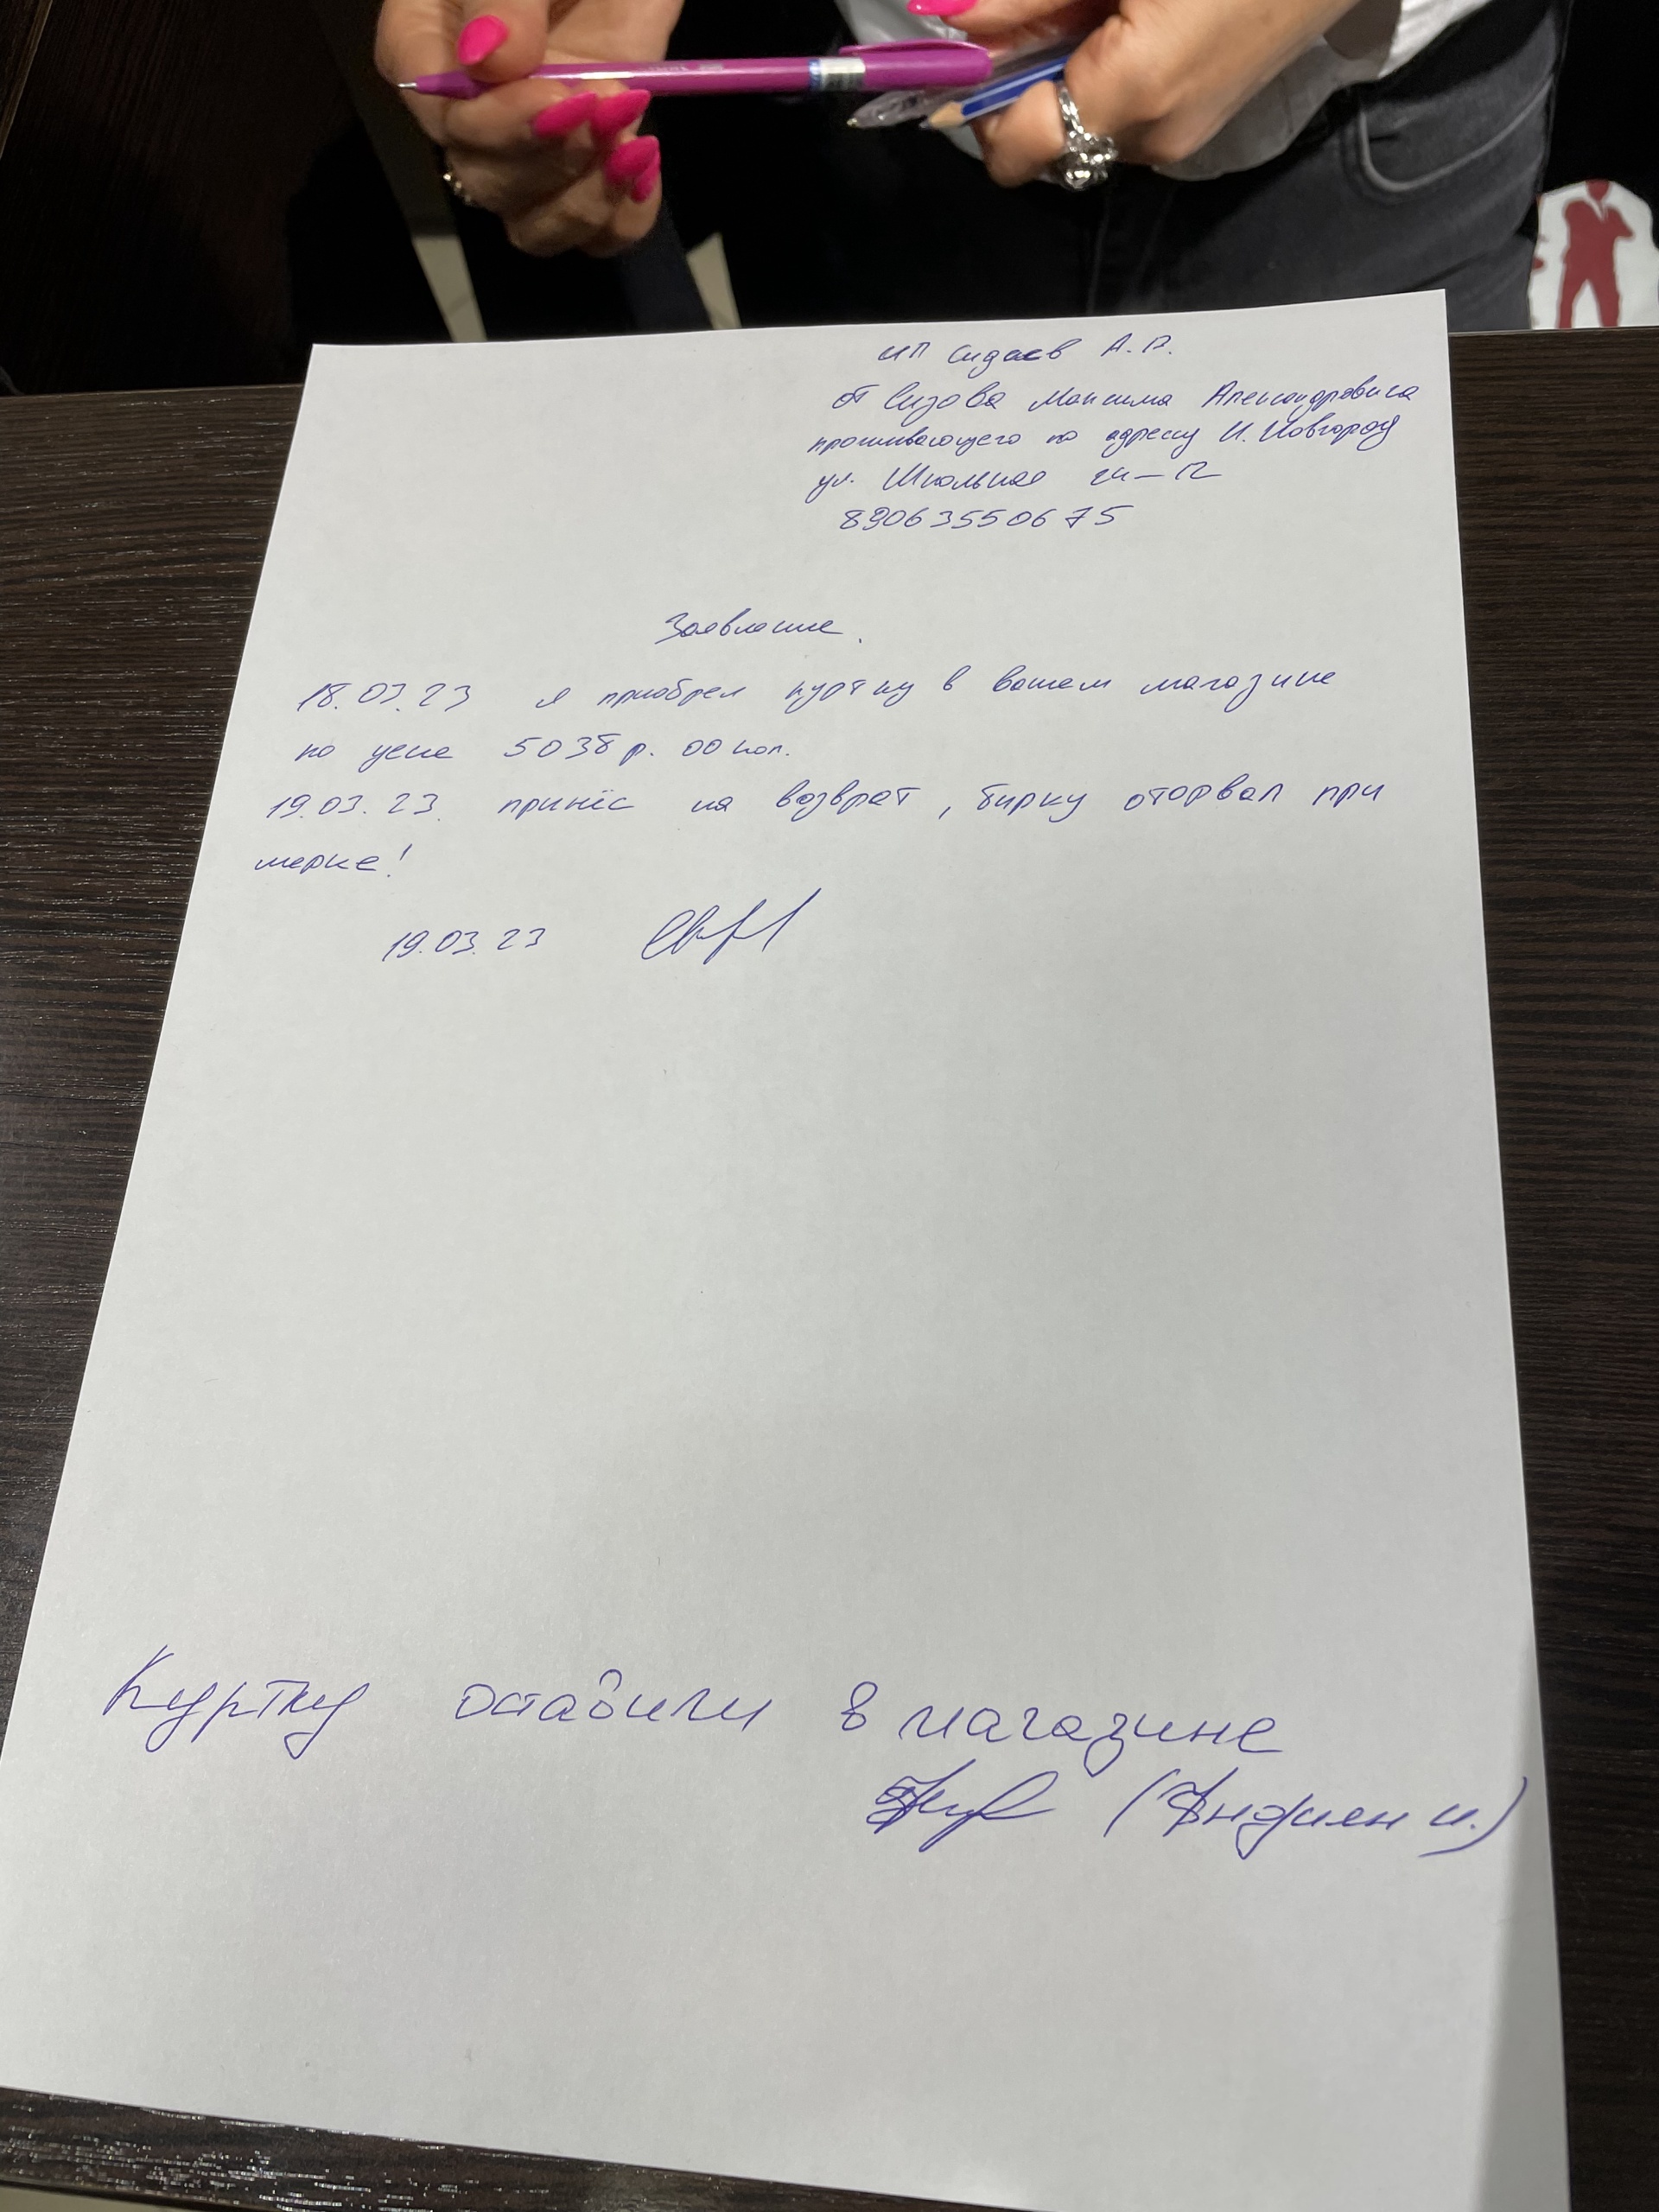 ИП Сидаев А.Р.
от Сизова Максима Александровича
проживающего по адресу Н. Новгород
ул. Школьная
89063550675
Заявление.
18.03.23 я приобрел куртку в вашем магазине
по цене 5038 р. 00 коп.
19.03.23 принёс на возврат, бирку оторвал при
мерке!
19.03.23
Куртку оставили в магазине